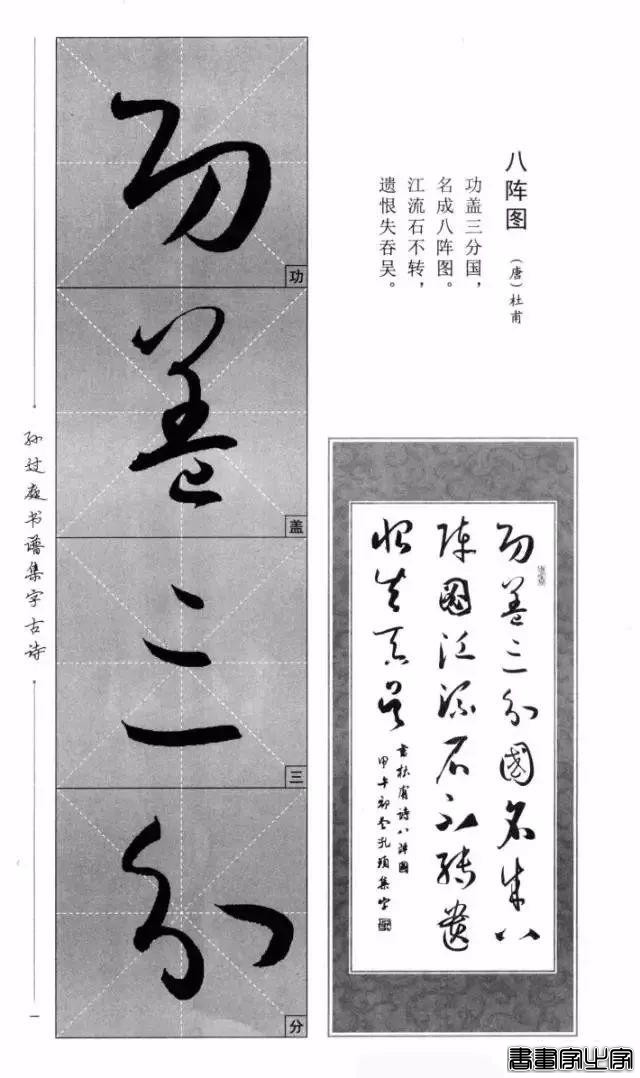 八阵图
（唐）杜甫
功盖三分国，
名成八阵图。
江流石不转，
遗恨失吞吴。
功盖三分國名成八
陣圖江流石不轉遺
恨失吞吳
書杜甫詩八陣圖
甲午初冬孔集字
功
功
盖
盖
三
三
分
分
孙过庭书谱集字古诗
一
書畫家之家